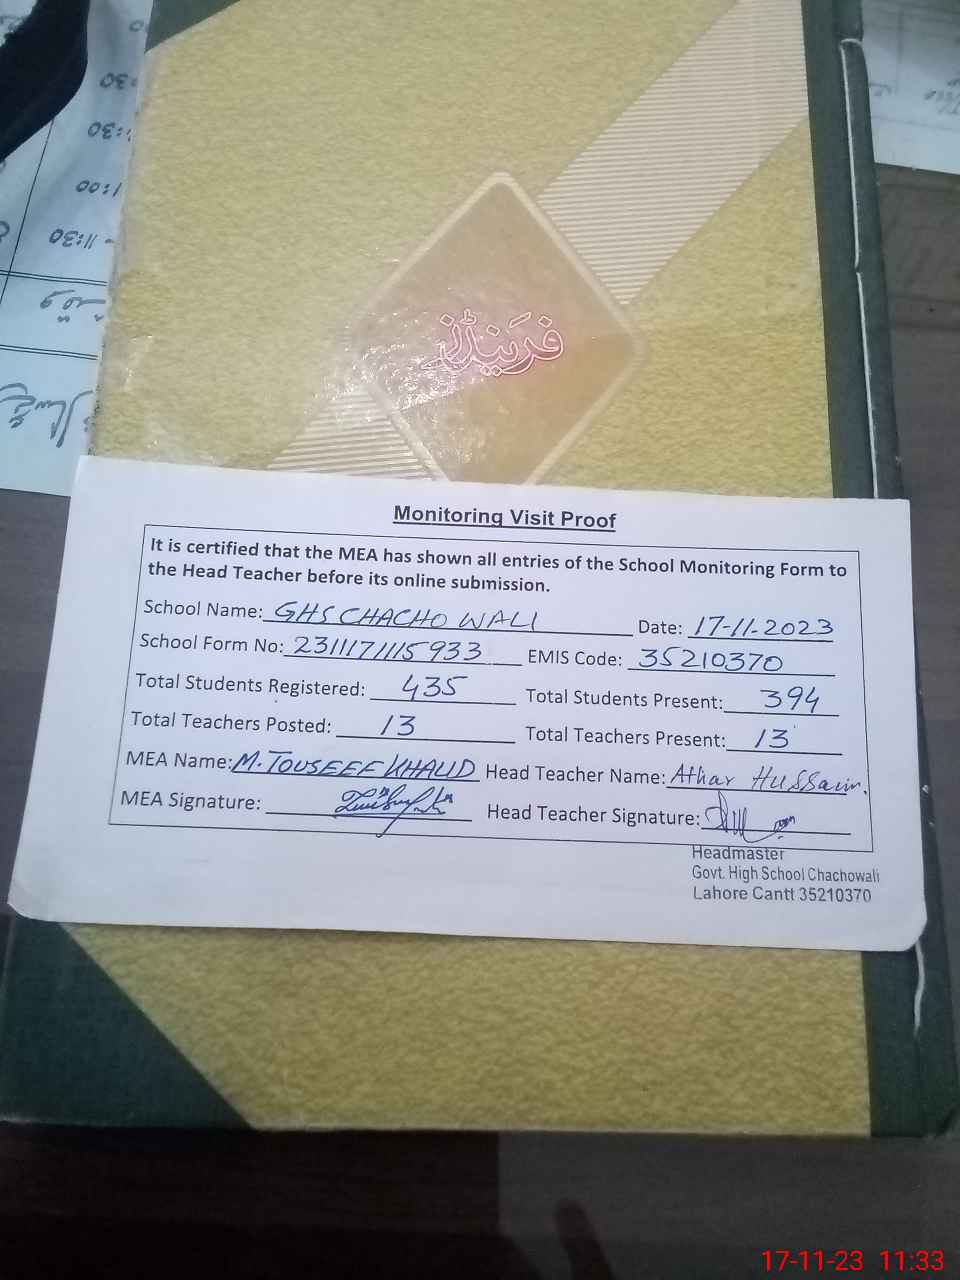 فرینڈز
Monitoring Visit Proof
It is certified that the MEA has shown all entries of the School Monitoring Form to
the Head Teacher before its online submission.
School Name: GHS CHACHO WALI Date: 17-11-2023
School Form No: 2311171115933 EMIS Code: 35210370
Total Students Registered: 435 Total Students Present: 394
Total Teachers Posted: 13 Total Teachers Present: 13
MEA Name: M. TOUSEEF KHALID Head Teacher Name: Athar Hussain.
MEA Signature: Head Teacher Signature:
Headmaster
Govt. High School Chachowali
Lahore Cantt 35210370
11:30
11:00
17-11-23 11:33